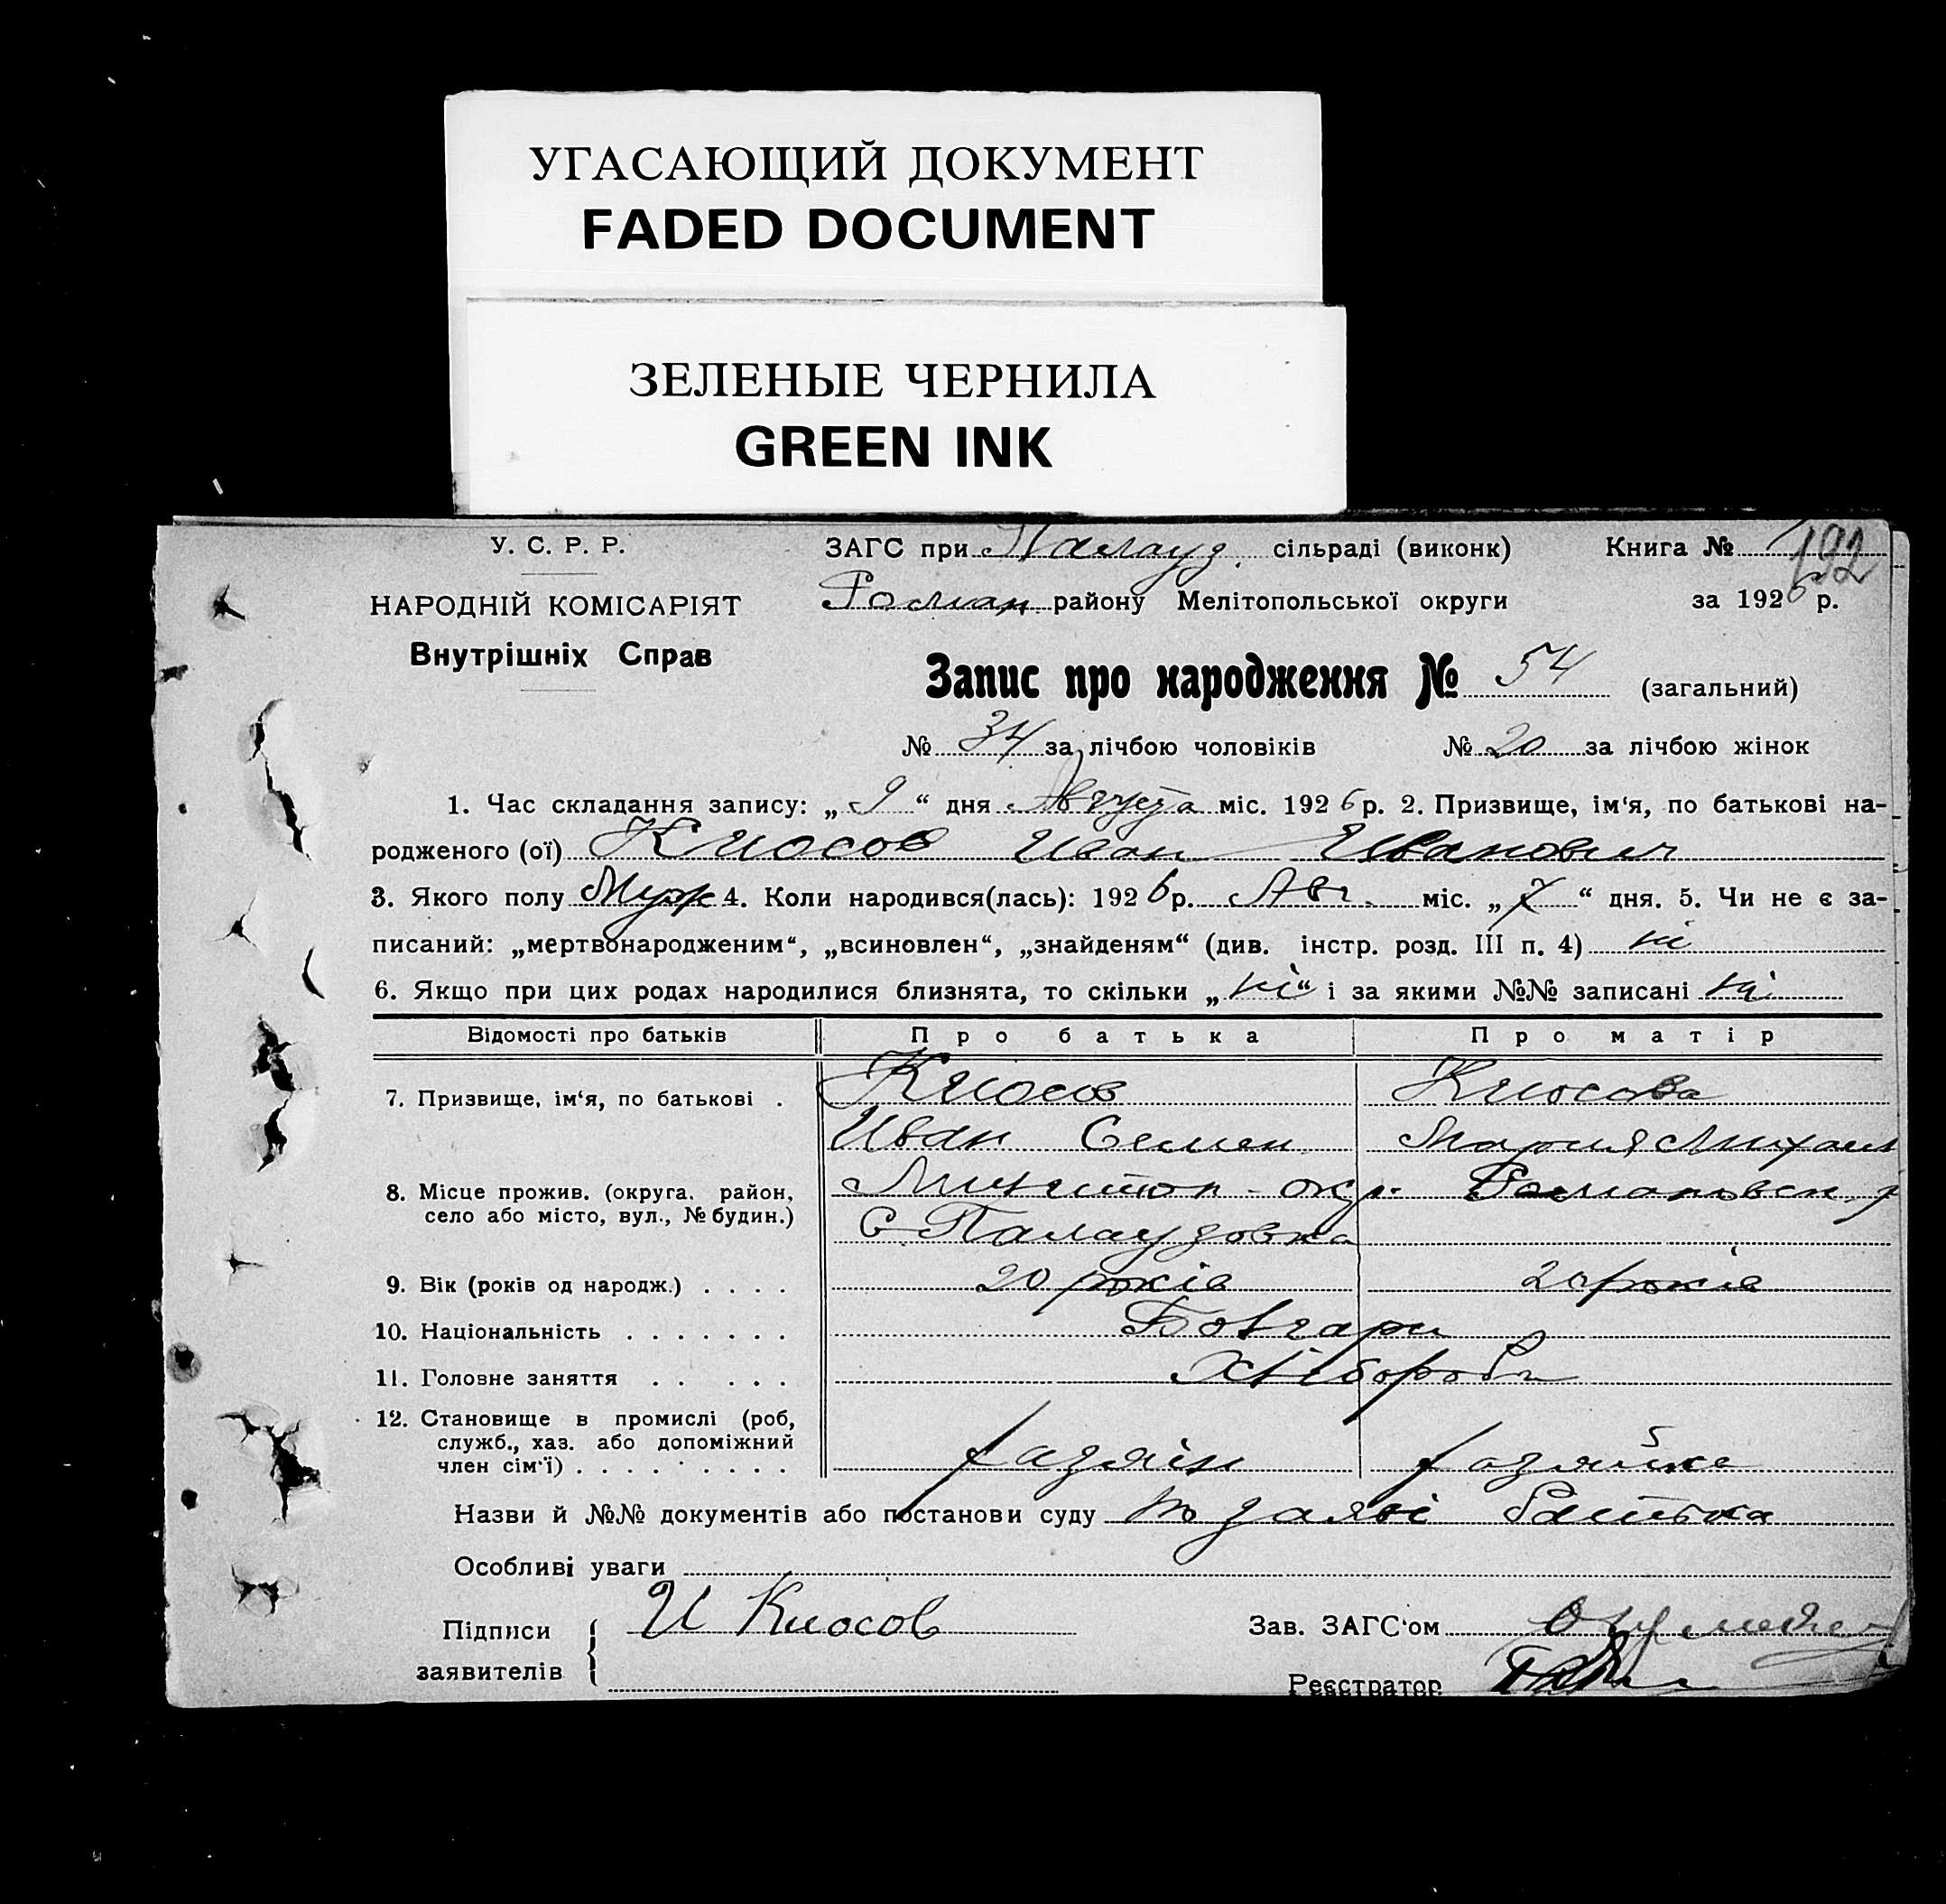 УГАСАЮЩИЙ ДОКУМЕНТ
FADED DOCUMENT
ЗЕЛЕНЫЕ ЧЕРНИЛА
GREEN INK
У. С. Р. Р.
НАРОДНІЙ КОМІСАРІЯТ
Внутрішніх Справ
ЗАГС при Палауз. сільраді (виконк) Книга № 192
Роман районy Мелітопольської округи за 1926 р.
Запис про народження № 54 (загальний)
№ 34 за лічбою чоловіків № 20 за лічбою жінок
1. Час складання запису: „ 9 “ дня Августа міс. 1926 р. 2. Призвище, ім‘я, по батькові на-
родженого (ої) Кюсов Иван Иванович
3. Якого полу Муж 4. Коли народився(лась): 1926 р. Авг. міс. „ 7 “ дня. 5. Чи не є за-
писаний: „мертвонародженим“, „всиновлен“, „знайденям“ (див. інстр. розд. III п. 4) ні
6. Якщо при цих родах народилися близнята, то скільки „ ні “ і за якими №№ записані ні
Відомості про батьків Про батька Про матір
7. Призвище, ім‘я, по батькові . Кюсов Кюсова
Иван Семен Мария Михаил
8. Місце прожив. (округа, район, село або місто, вул., № будин.) окр. Романовск. р
С. Палаузовка
9. Вік (років од народж.) . . . . 20 років 20 років
10. Національність . . . . . . . Бовгари
11. Головне заняття . . . . . Хлібороби
12. Становище в промислі (роб, служб., хаз. або допоміжний член сім‘ї) . . . . . . . . . хазяін хазяйка
Назви й №№ документів або постанови суду по заяві батька
Особливі уваги
Підписи
заявителів
И Кюсов
Зав. ЗАГС‘ом
Реєстратор